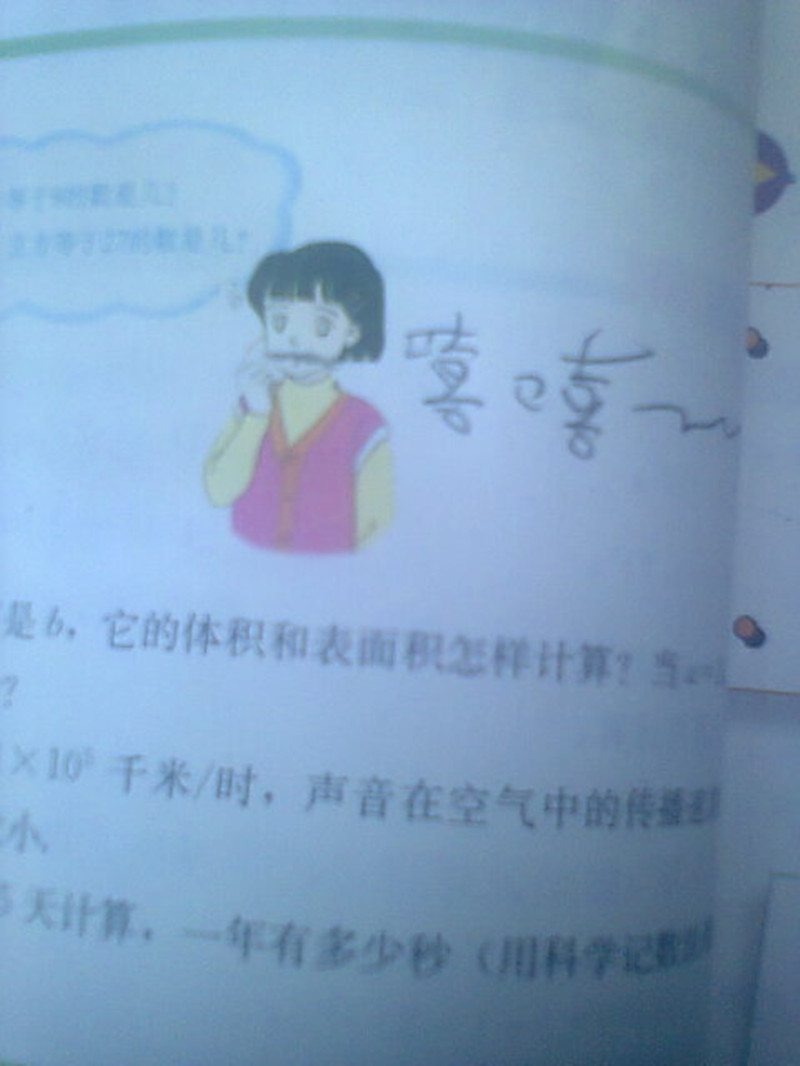 等于9的数是几?
立方等于27的数是几?
嘻嘻~
是b,它的体积和表面积怎样计算?当a=
?
×10⁵ 千米/时,声音在空气中的传播速
小.
5 天计算,一年有多少秒(用科学记数法